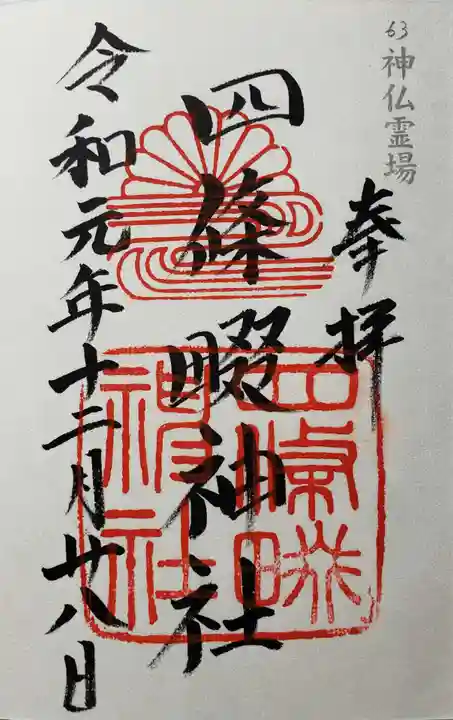 63 神仏霊場
奉拝
四條畷神社
令和元年十二月廿八日
四條畷
神社